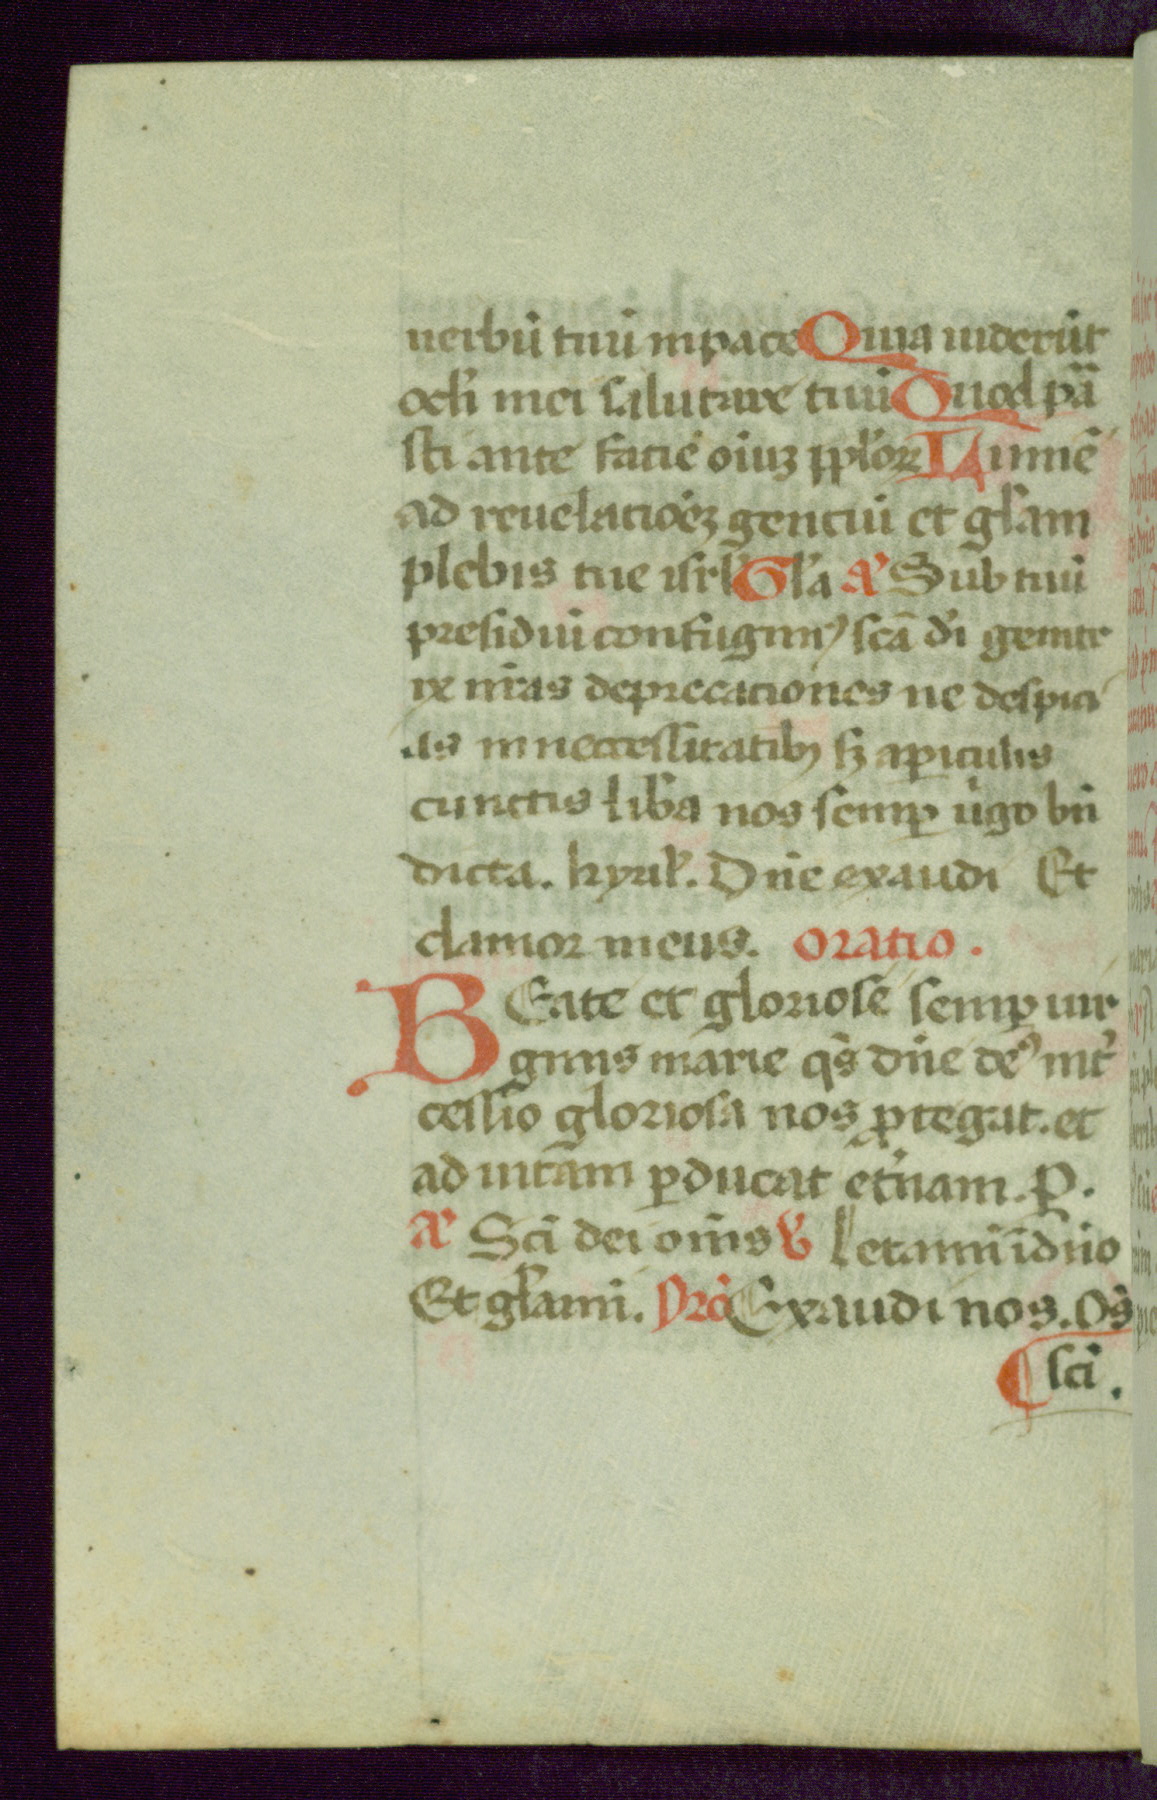 uerbũ tuũ in pace Quia uiderũt
ocl'i mei salutare tuũ Quod pã
sti ante faciẽ oiuꝫ pplor̃ Lumẽ
ad reuelatiõeꝫ gentiũ et gl'am
plebis tue isrl' Gl'a A' Sub tuũ
presidiũ confugimꝰ scã d'i genitr
ix nr̃as deprecationes ne despici
as in necessitatibꝫ sꝫ a ꝑiculis
cunctis lib'a nos semꝑ uirgo bñ
dicta. kyriel'. Dñe exaudi Et
clamor meus. oratio.
BEate et gloriose semꝑ uir
ginis marie qs̃ dñe deꝰ int'
cessio gloriosa nos ꝓtegat. et
ad uitam ꝑducat et'nam. P.
A' Scĩ dei om̃s ℣ Letamĩ ĩ dño
Et gl'amĩ. Orõ Exaudi nos. Os̃
sci.